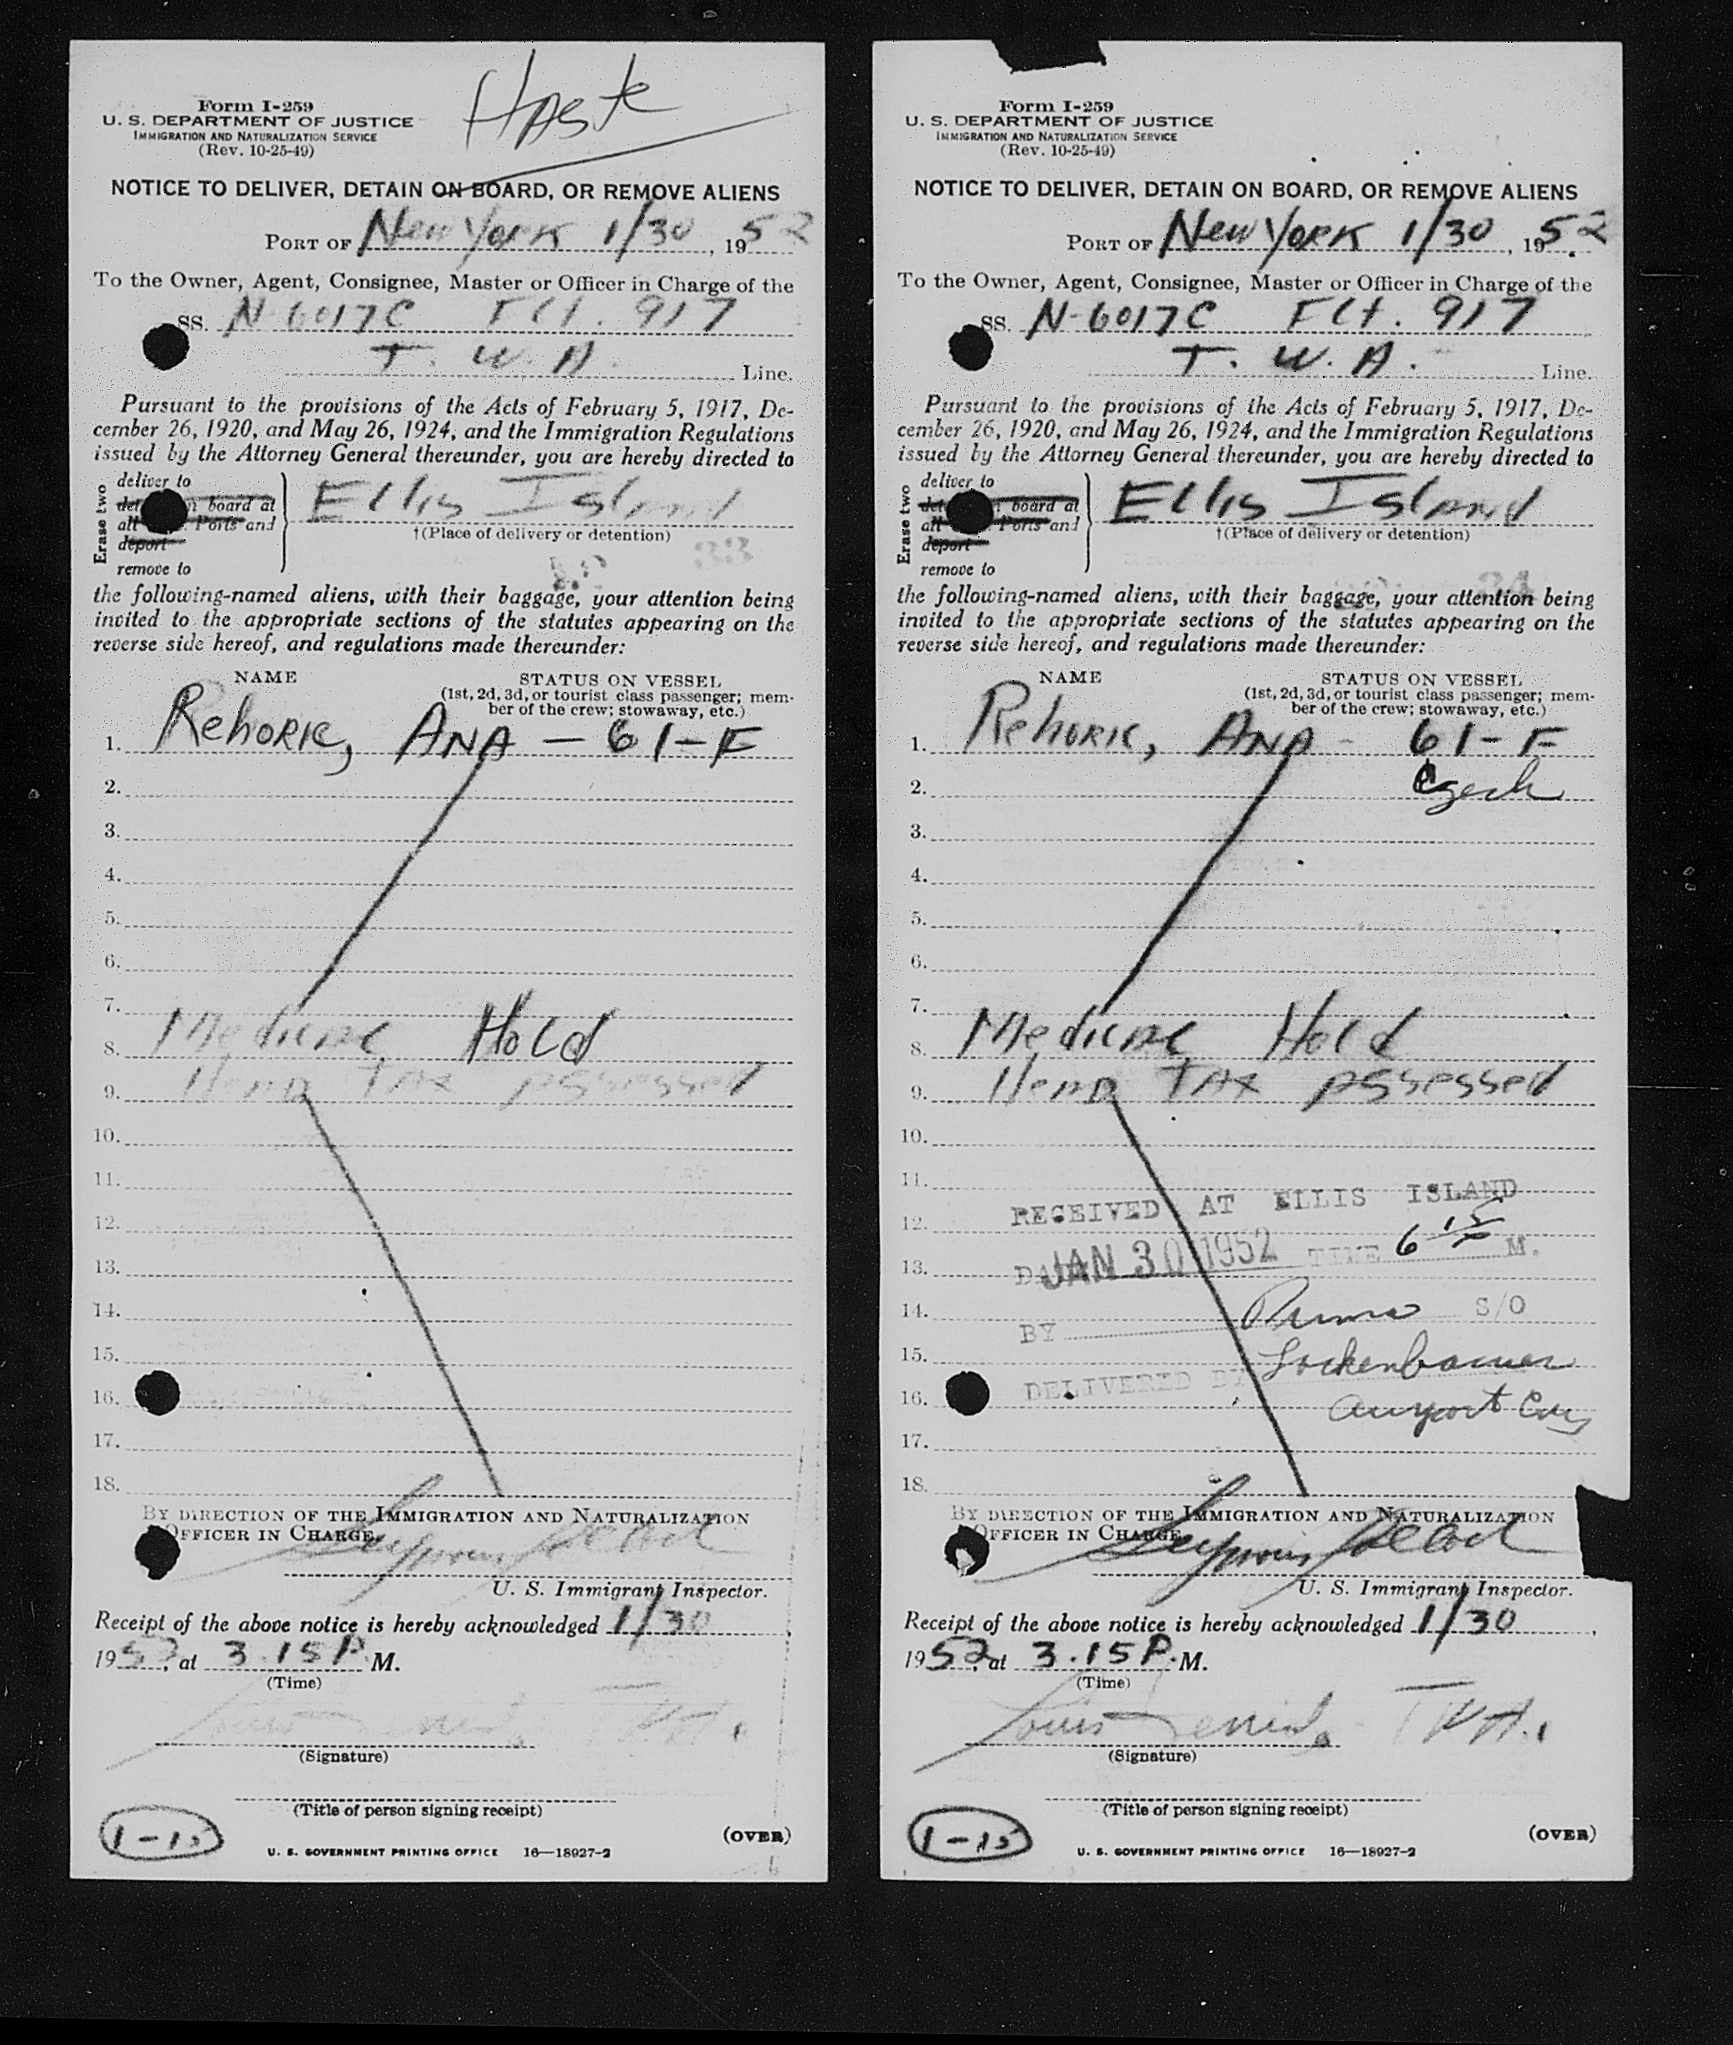 Haste
Form I-259
U. S. DEPARTMENT OF JUSTICE
IMMIGRATION AND NATURALIZATION SERVICE
(Rev. 10-25-49)
NOTICE TO DELIVER, DETAIN ON BOARD, OR REMOVE ALIENS
PORT OF New York 1/30, 1952
To the Owner, Agent, Consignee, Master or Officer in Charge of the
SS. N-6017C Flt. 917
T. W. A. Line.
Pursuant to the provisions of the Acts of February 5, 1917, De-
cember 26, 1920, and May 26, 1924, and the Immigration Regulations
issued by the Attorney General thereunder, you are hereby directed to
Erase two
deliver to
board at
all Ports and
deport
remove to
Ellis Island
†(Place of delivery or detention)
33
the following-named aliens, with their baggage, your attention being
invited to the appropriate sections of the statutes appearing on the
reverse side hereof, and regulations made thereunder:
NAME
STATUS ON VESSEL
(1st, 2d, 3d, or tourist class passenger; mem-
ber of the crew; stowaway, etc.)
1. Rehorik, ANA - 61-F
2.
3.
4.
5.
6.
7.
8. Medical Hold
9. Head Tax Assessed
10.
11.
12.
13.
14.
15.
16.
17.
18.
BY DIRECTION OF THE IMMIGRATION AND NATURALIZATION
OFFICER IN CHARGE.
U. S. Immigrant Inspector.
Receipt of the above notice is hereby acknowledged 1/30,
1952, at 3.15 P. M.
(Time)
Louis TWA.
(Signature)
(Title of person signing receipt)
1-15
(OVER)
U. S. GOVERNMENT PRINTING OFFICE 16—18927-2
Form I-259
U. S. DEPARTMENT OF JUSTICE
IMMIGRATION AND NATURALIZATION SERVICE
(Rev. 10-25-49)
NOTICE TO DELIVER, DETAIN ON BOARD, OR REMOVE ALIENS
PORT OF New York 1/30, 1952
To the Owner, Agent, Consignee, Master or Officer in Charge of the
SS. N-6017C Flt. 917
T. W. A. Line.
Pursuant to the provisions of the Acts of February 5, 1917, De-
cember 26, 1920, and May 26, 1924, and the Immigration Regulations
issued by the Attorney General thereunder, you are hereby directed to
Erase two
deliver to
board at
all Ports and
deport
remove to
Ellis Island
†(Place of delivery or detention)
34
the following-named aliens, with their baggage, your attention being
invited to the appropriate sections of the statutes appearing on the
reverse side hereof, and regulations made thereunder:
NAME
STATUS ON VESSEL
(1st, 2d, 3d, or tourist class passenger; mem-
ber of the crew; stowaway, etc.)
1. Rehorik, ANA - 61-F
2. Czech
3.
4.
5.
6.
7.
8. Medical Hold
9. Head Tax Assessed
10.
11.
RECEIVED AT ELLIS ISLAND
12.
13. DATE JAN 30 1952 TIME 6 15 M.
14.
BY S/O
15.
DELIVERED BY
16. Airport
17.
18.
BY DIRECTION OF THE IMMIGRATION AND NATURALIZATION
OFFICER IN CHARGE.
U. S. Immigrant Inspector.
Receipt of the above notice is hereby acknowledged 1/30,
1952, at 3.15 P. M.
(Time)
Louis TWA.
(Signature)
(Title of person signing receipt)
1-15
(OVER)
U. S. GOVERNMENT PRINTING OFFICE 16—18927-2